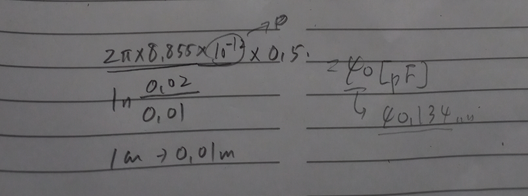 → p
2π×8,855×10⁻¹² × 0,5.
ln 0,02 / 0,01
= 40 [pF]
↳ 40,134...
1cm → 0,01m